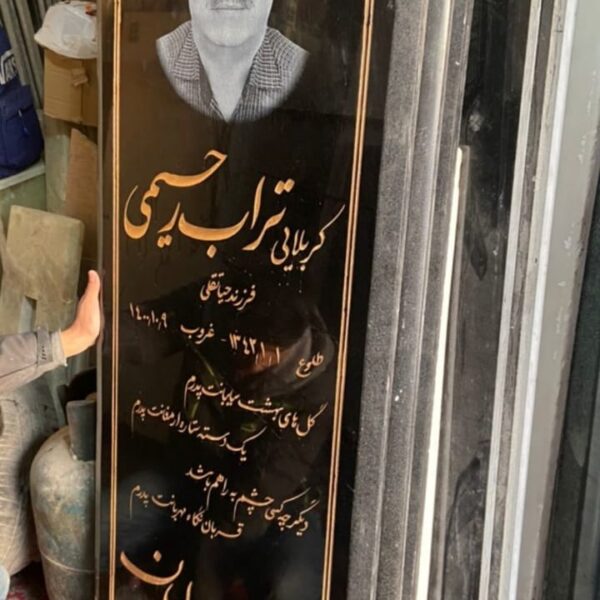 کربلایی تراب رحیمی
فرزند حیاتقلی
طلوع ۱۳۴۲,۱,۱ - غروب ۱۴۰۰,۱۰,۹
گل های بهشت سایبانت پدرم
یک دسته ستاره ارمغانت پدرم
دیگر چه کسی چشم به راهم باشد
قربان نگاه مهربانت پدرم